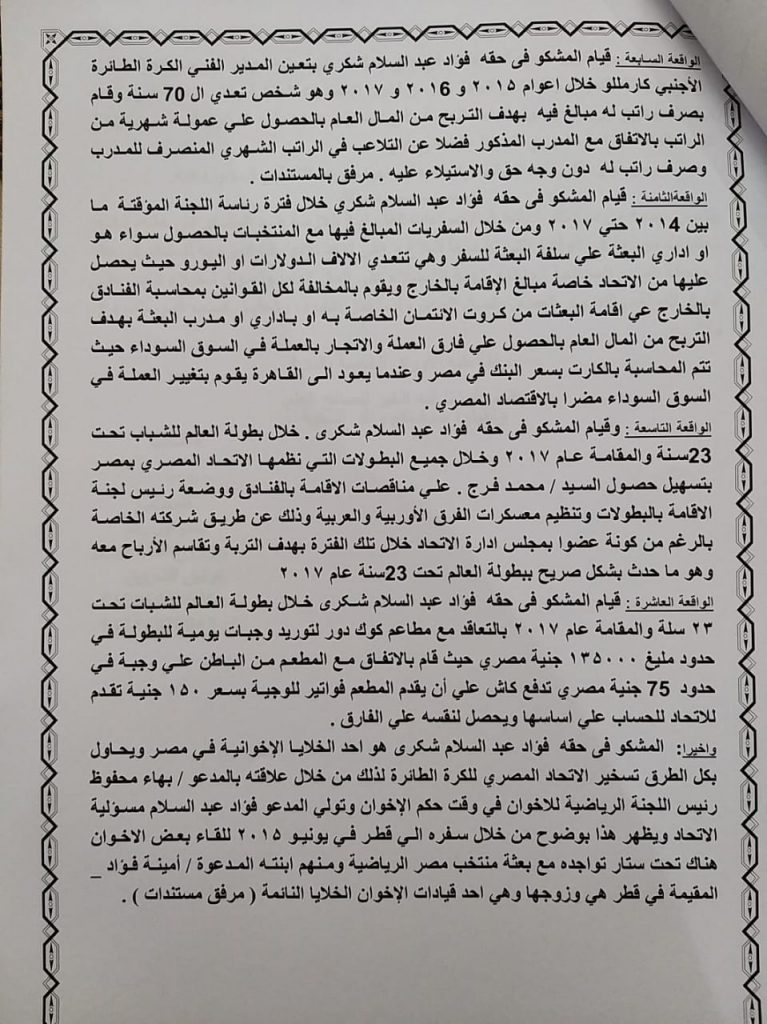 الواقعة السابعة : قيام المشكو فى حقه فؤاد عبد السلام شكري بتعين المدير الفني الكرة الطائرة
الأجنبي كارمللو خلال اعوام ٢٠١٥ و 2016 و ٢٠١٧ وهو شخص تعدي ال 70 سنة وقام
بصرف راتب له مبالغ فيه بهدف التربح من المال العام بالحصول علي عمولة شهرية من
الراتب بالاتفاق مع المدرب المذكور فضلا عن التلاعب في الراتب الشهري المنصرف للمدرب
وصرف راتب له دون وجه حق والاستيلاء عليه . مرفق بالمستندات .
الواقعةالثامنة : قيام المشكو فى حقه فؤاد عبد السلام شكري خلال فترة رئاسة اللجنة المؤقتة ما
بين 2014 حتي ٢٠١٧ ومن خلال السفريات المبالغ فيها مع المنتخبات بالحصول سواء هو
او اداري البعثة علي سلفة البعثة للسفر وهي تتعدي الالاف الدولارات او اليورو حيث يحصل
عليها من الاتحاد خاصة مبالغ الإقامة بالخارج ويقوم بالمخالفة لكل القوانين بمحاسبة الفنادق
بالخارج عي اقامة البعثات من كروت الائتمان الخاصة به او باداري او مدرب البعثة بهدف
التربح من المال العام بالحصول علي فارق العملة والاتجار بالعملة في السوق السوداء حيث
تتم المحاسبة بالكارت بسعر البنك في مصر وعندما يعود الى القاهرة يقوم بتغيير العملة في
السوق السوداء مضرا بالاقتصاد المصري .
الواقعة التاسعة : وقيام المشكو فى حقه فؤاد عبد السلام شكرى . خلال بطولة العالم للشباب تحت
23سنة والمقامة عام ٢٠١٧ وخلال جميع البطولات التي نظمها الاتحاد المصري بمصر
بتسهيل حصول السيد / محمد فرج . علي مناقصات الاقامة بالفنادق ووضعة رئيس لجنة
الاقامة بالبطولات وتنظيم معسكرات الفرق الأوربية والعربية وذلك عن طريق شركته الخاصة
بالرغم من كونة عضوا بمجلس ادارة الاتحاد خلال تلك الفترة بهدف التربة وتقاسم الأرباح معه
وهو ما حدث بشكل صريح ببطولة العالم تحت 23سنة عام ٢٠١٧
الواقعة العاشرة : قيام المشكو فى حقه فؤاد عبد السلام شكرى خلال بطولة العالم للشبات تحت
٢٣ سلة والمقامة عام ٢٠١٧ بالتعاقد مع مطاعم كوك دور لتوريد وجبات يومية للبطولة في
حدود مليغ ١٣٥٠٠٠ جنية مصري حيث قام بالاتفاق مع المطعم من الباطن علي وجبة في
حدود 75 جنية مصري تدفع كاش علي أن يقدم المطعم فواتير للوجبة بسعر ١٥٠ جنية تقدم
للاتحاد للحساب علي اساسها ويحصل لنفسه علي الفارق .
واخيرا: المشكو فى حقه فؤاد عبد السلام شكرى هو احد الخلايا الإخوانية في مصر ويحاول
بكل الطرق تسخير الاتحاد المصري للكرة الطائرة لذلك من خلال علاقته بالمدعو / بهاء محفوظ
رئيس اللجنة الرياضية للاخوان في وقت حكم الإخوان وتولي المدعو فؤاد عبد السلام مسؤلية
الاتحاد ويظهر هذا بوضوح من خلال سفره الي قطر في يونيو ٢٠١٥ للقاء بعض الاخوان
هناك تحت ستار تواجده مع بعثة منتخب مصر الرياضية ومنهم ابنته المدعوة / أمينة فؤاد _
المقيمة في قطر هي وزوجها وهي احد قيادات الإخوان الخلايا النائمة ( مرفق مستندات ) .